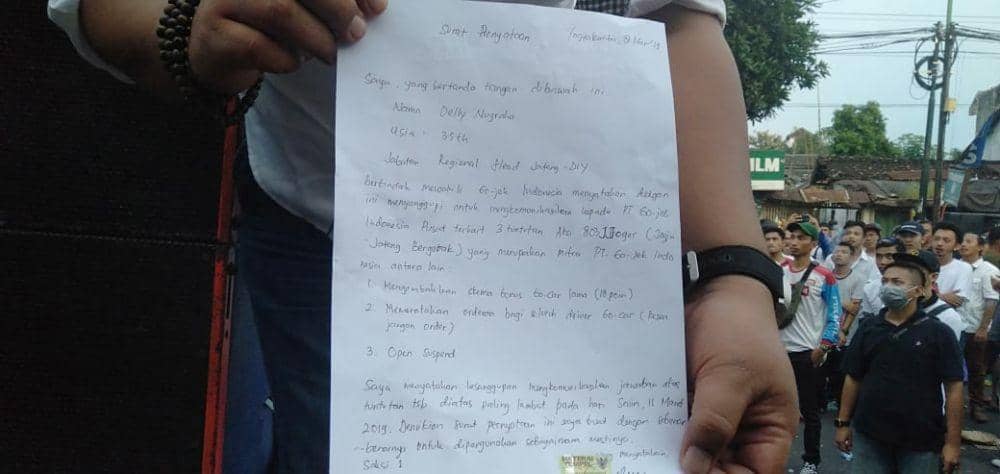 Surat Pernyataan
Yogyakarta, 8 Mar '19
Saya, yang bertanda tangan dibawah ini
Nama Delly Nugraha
Usia : 35 th
Jabatan Regional Head Jateng - DIY
Bertindak mewakili Go-jek Indonesia menyatakan dengan
ini menyanggupi untuk mengkomunikasikan kepada PT Go-jek
Indonesia Pusat terkait 3 tuntutan Aksi 803 Joger (Jogja
- Jateng Bergerak) yang merupakan mitra PT. Go-jek Indo
nesia antara lain :
1. Mengembalikan skema bonus Go-car lama (18 poin)
2. Memeratakan orderan bagi seluruh driver Go-car (
jangan order)
3. Open Suspend
Saya menyatakan kesanggupan mengkomunikasikan jawaban atas
tuntutan tsb diatas paling lambat pada hari Senin, 11 Maret
2019. Demikian surat pernyataan ini saya buat dengan sebenar
-benarnya untuk dipergunakan sebagaimana mestinya.
Saksi 1
menyatakan,
METERAI
TEMPEL
ILM